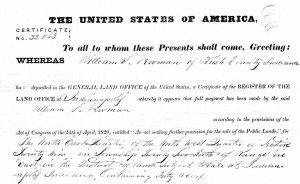 THE UNITED STATES OF AMERICA,
CERTIFICATE
To all to whom these Presents shall come, Greeting:
WHEREAS William of Rush County Indiana
deposited in the GENERAL LAND OFFICE of the United States, a Certificate of the REGISTER OF THE
LAND OFFICE at Indianapolis whereby it appears that full payment has been made by the said
William
according to the provisions of the
Act of Congress of the 24th of April, 1820, entitled "An act making further provision for the sale of the Public Lands," for
the North East quarter of the North West quarter of Section
Twenty nine in Township Twenty two North of Range
East in the District of Lands Subject to Sale at
Indiana Containing forty acres